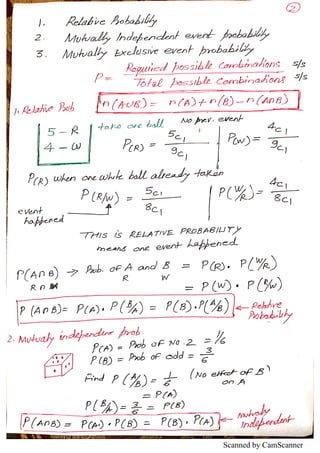 2
1. Relative Probability
2. Mutually Independent event probability
3. Mutually Exclusive event probability
P = Required possible Combinations s/s
Total possible Combinations s/s
n(A∪B) = n(A)+n(B)-n(A∩B)
1. Relative Prob
5 - R
4 - W
take one ball
No prev. event
P(R) = 5C1 / 9C1
P(W) = 4C1 / 9C1
P(R) when one white ball already taken
P(R/W) = 5C1 / 8C1
P(W/R) = 4C1 / 8C1
event happened
THIS IS RELATIVE PROBABILITY
means one event happened.
P(A∩B) → Prob. of A and B = P(R). P(W/R)
R∩W R W = P(W). P(R/W)
P(A∩B) = P(A). P(B/A) = P(B).P(A/B) ← Relative Probability
2. Mutualy independent prob.
P(A) = Prob of NO. 2 = 1/6
P(B) = Prob of odd = 3/6
Find P(A/B) = 1/6 (No effect of B on A)
= P(A)
P(B/A) = 3/6 = P(B)
P(A∩B) = P(A).P(B) = P(B).P(A) ← mutualy Independent
Scanned by CamScanner